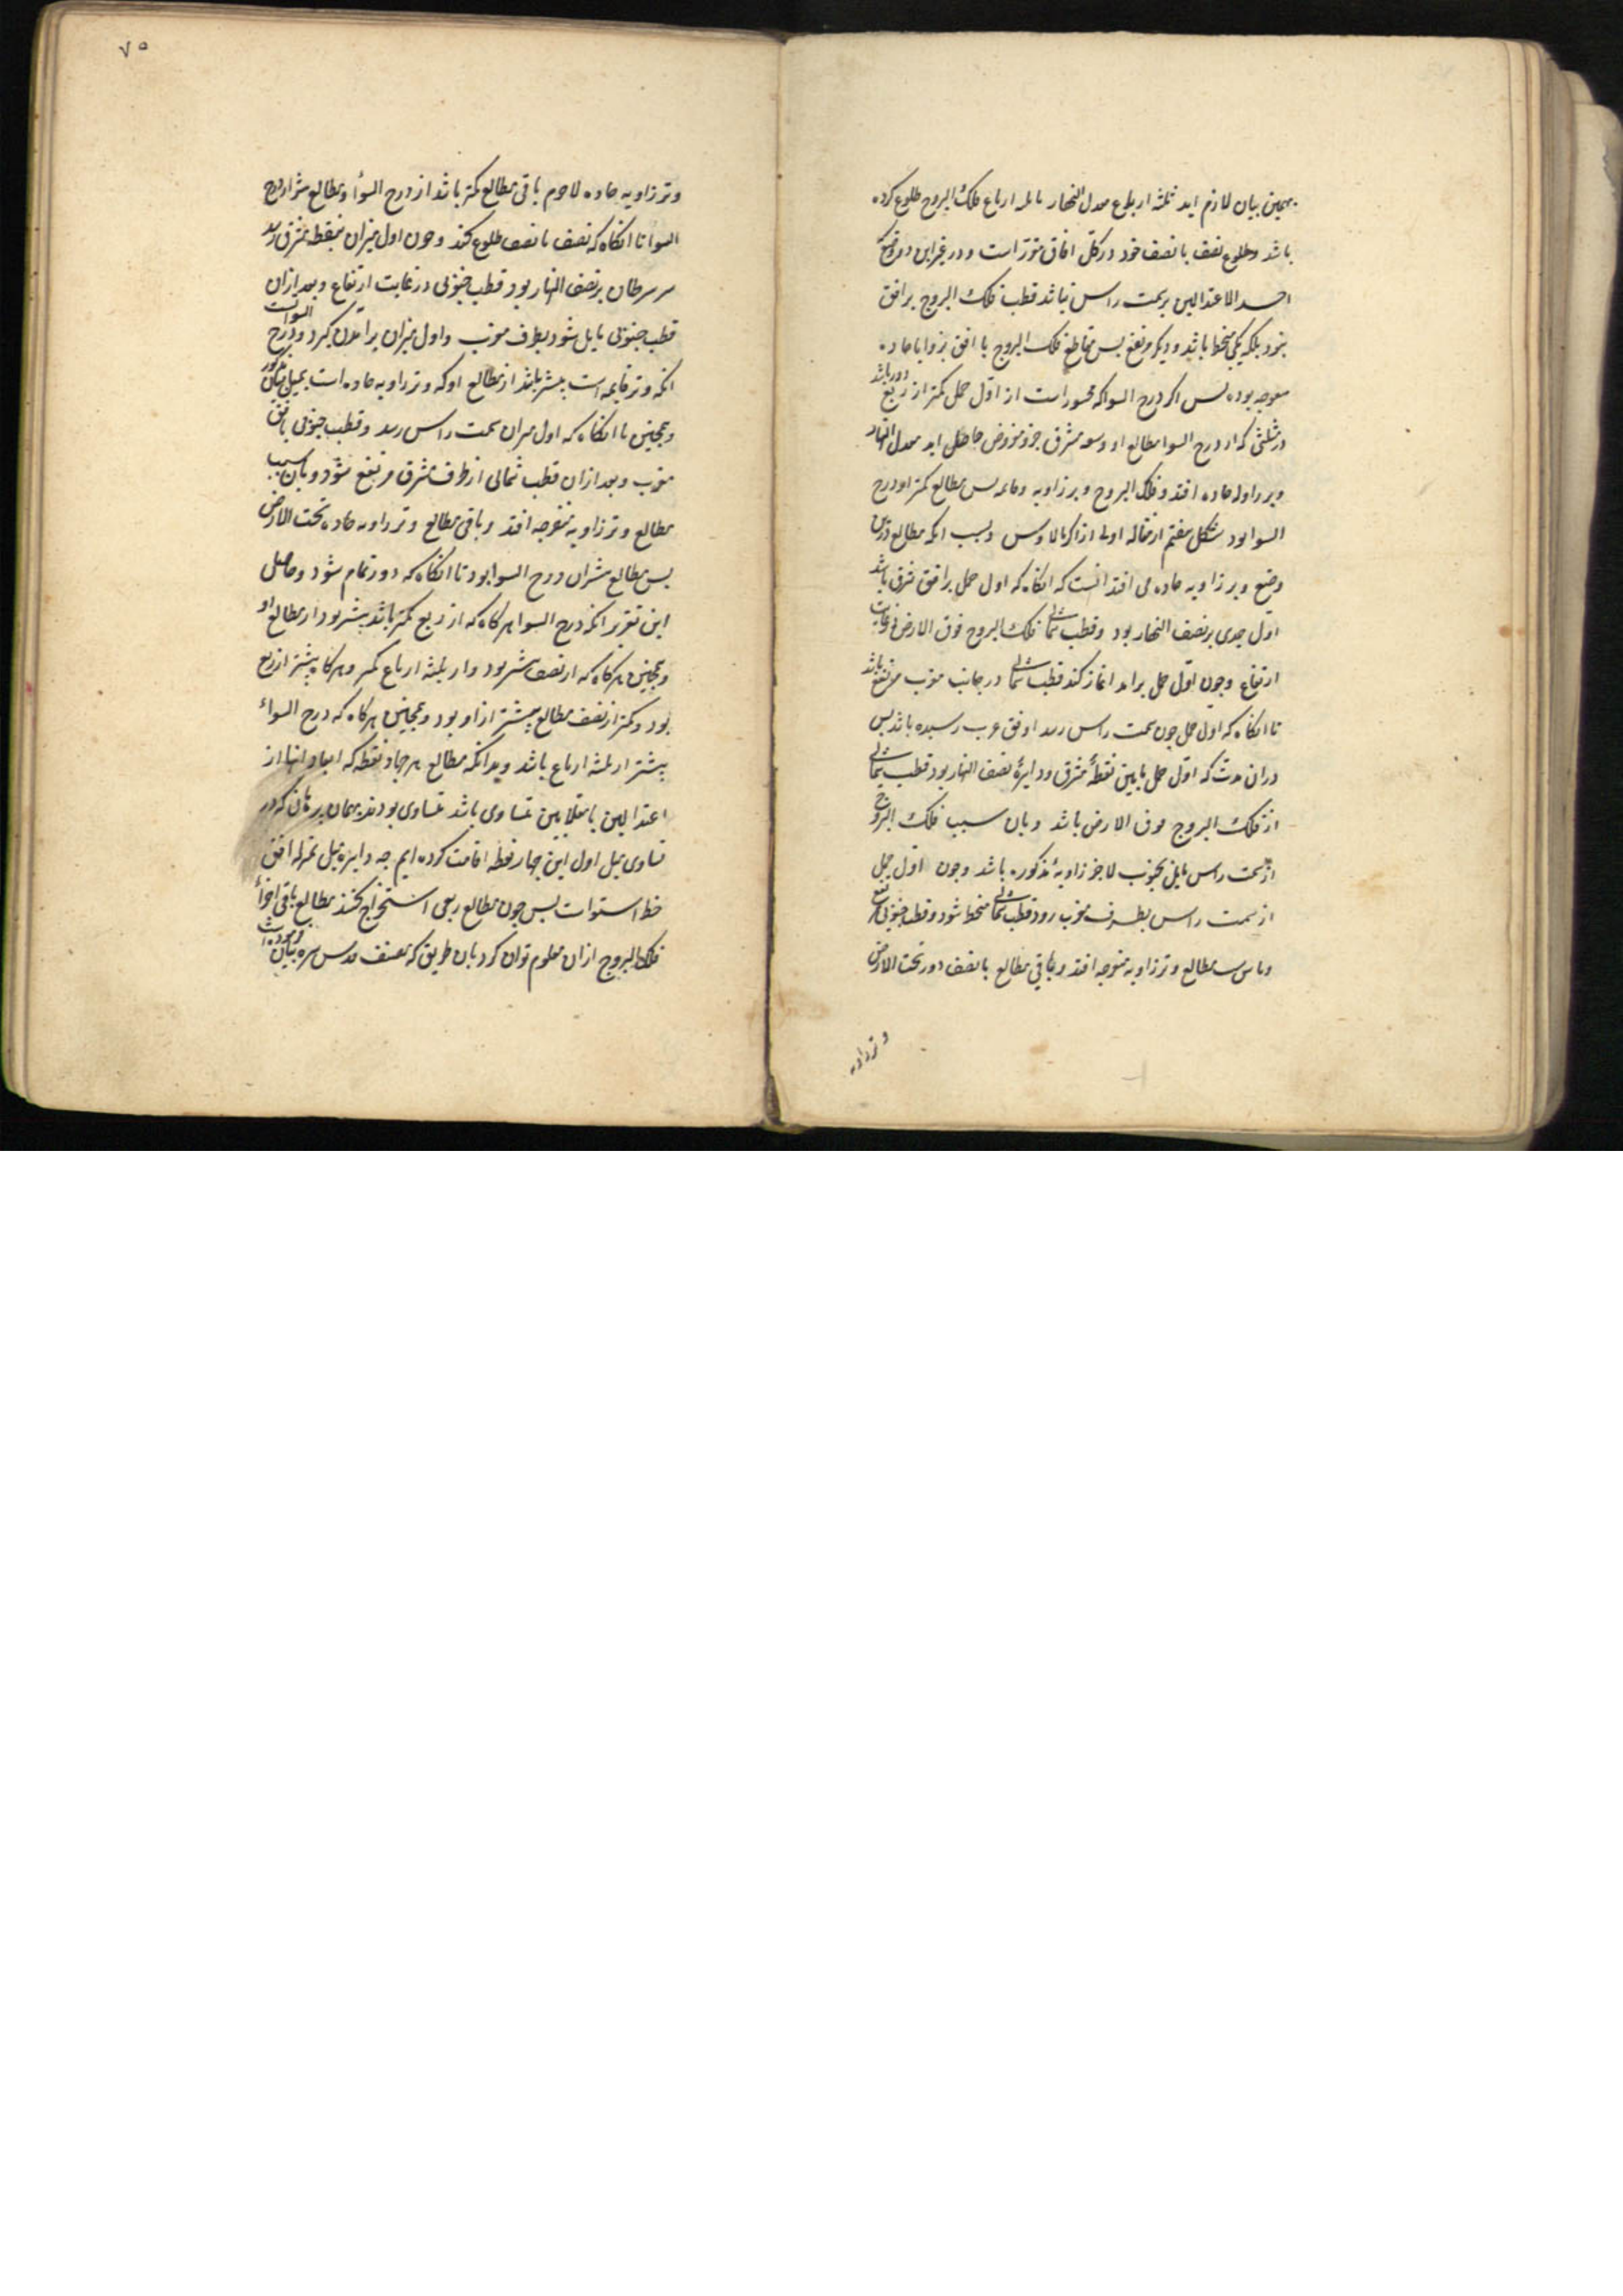 بهمین بیان لازم اید ثلثه ارباع معدل النهار با ثلثه ارباع فلک البروج طلوع کرده
باشد و طلوع نصف با نصف خود در کل افاق مقرر است و در غیر این دو وضع
احد الاعتدالین بر سمت راس نباشد قطب فلک البروج بر افق
نبود بلکه یکی منحط باشد و دیگر مرتفع پس تقاطع فلک البروج با افق بزوایا حاده
منفرجه بوده پس اگر درج السوا که محسور است از اول حمل کمتر از ربع دور باشد
در مثلثی که از درج السوا مطالع او و سعه مشرق جزو مفروض حاصل اید معدل النهار
وتر زاویه حاده افتد و فلک البروج وتر زاویه قایمه پس مطالع کمتر از درج
السوا بود بشکل هفتم از مقاله اولی از اکر مالاوس و سبب انکه مطالع درین
وضع وتر زاویه حاده می افتد انست که انکاه که اول حمل بر افق شرق باشد
اول جدی بر نصف النهار بود و قطب شمالی فلک البروج فوق الارض در غایت
ارتفاع و چون اول حمل براید اغاز کند قطب شمالی در جانب مغرب مرتفع باشد
تا انکاه که اول حمل چون بسمت راس رسد او بافق غرب رسیده باشد پس
دران مدت که اول حمل مابین نقطهٔ مشرق و دایرهٔ نصف النهار بود قطب شمالی
از فلک البروج فوق الارض باشد و بان سبب فلک البروج
از سمت راس مایل بجنوب لاجرم زاویهٔ مذکوره باشد و چون اول حمل
از سمت راس بطرف مغرب رود قطب شمالی منحط شود و قطب جنوبی مرتفع
و باین سبب مطالع وتر زاویه منفرجه افتد و باقی مطالع با نصف دور تحت الارض
وتر زاویه
۷۵
وتر زاویه حاده لاجرم باقی مطالع کمتر باشد از درج السوا و مطالع بیشتر از درج
السوا تا انکاه که نصف با نصف طلوع کند و چون اول میزان بنقطه مشرق رسد
سر سرطان بر نصف النهار بود قطب جنوبی در غایت ارتفاع و بعد ازان
قطب جنوبی مایل شود بطرف مغرب و اول میزان برامدن گیرد و درج السوا ست
انکه وتر قایمه است بیشتر باشد از مطالع او که وتر زاویه حاده است بمثل بیان مذکور
و همچنین تا انکاه که اول میزان بسمت راس رسد و قطب جنوبی بافق
مغرب و بعد ازان قطب شمالی از طرف مشرق مرتفع شود و بان سبب
مطالع وتر زاویه منفرجه افتد و باقی مطالع وتر زاویه حاده تحت الارض
پس مطالع بیشتر از درج السوا بود تا انکاه که دور تمام شود و حاصل
این تقریر انکه درج السوا هر کاه که از ربع کمتر باشد بیشتر بود از مطالع او
و همچنین هر کاه که از نصف بیشتر بود و از ثلثه ارباع کمتر و هر کاه بیشتر از ربع
بود و کمتر از نصف مطالع بیشتر ازاو بود و همچنین هر کاه که درج السواء
بیشتر از ثلثه ارباع باشد و بدانکه مطالع هر چهار نقطه که ابعاد انها از
اعتدالین یا منقلبین متساوی باشد متساوی بودند بهمان برهان که در
تساوی میل اول این چهار نقطه اقامت کرده ایم چه دایره میل بمنزله افق
خط استوا ست پس چون مطالع ربعی استخراج کنند مطالع باقی اجزأ
فلک البروج ازان معلوم توان کرد بان طریق که مصنف قدس سره بیان فرموده است